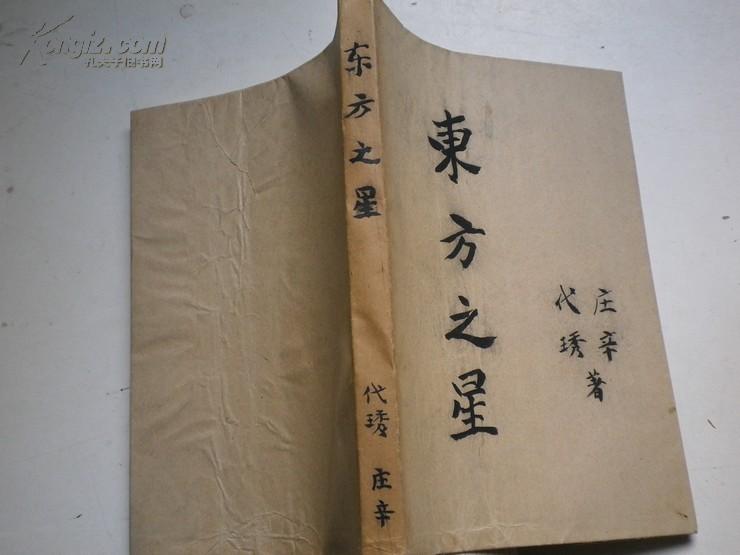 Kongfz.com
孔夫子旧书网
东方之星
代琇 庄辛
東方之星
庄辛著
代琇